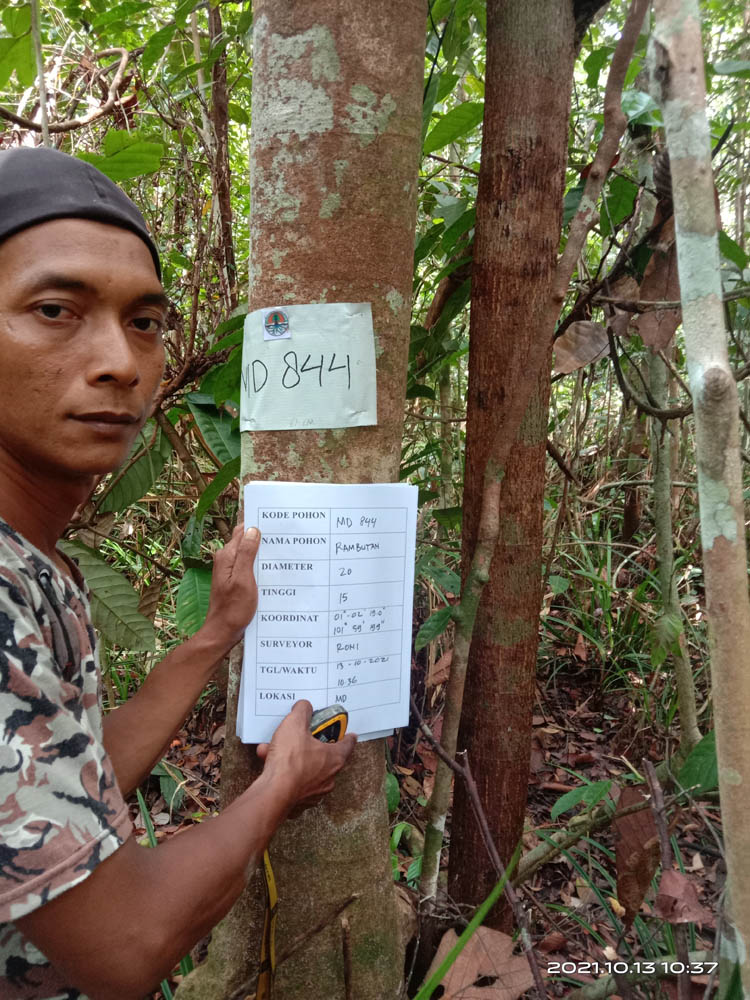 MD 844
KODE POHON MD 844
NAMA POHON RAMBUTAN
DIAMETER 20
TINGGI 15
KOORDINAT 01° - 02' 19.0"
101° 59' 59"
SURVEYOR RONI
TGL/WAKTU 13-10-2021
10.36
LOKASI MD
2021.10.13 10:37